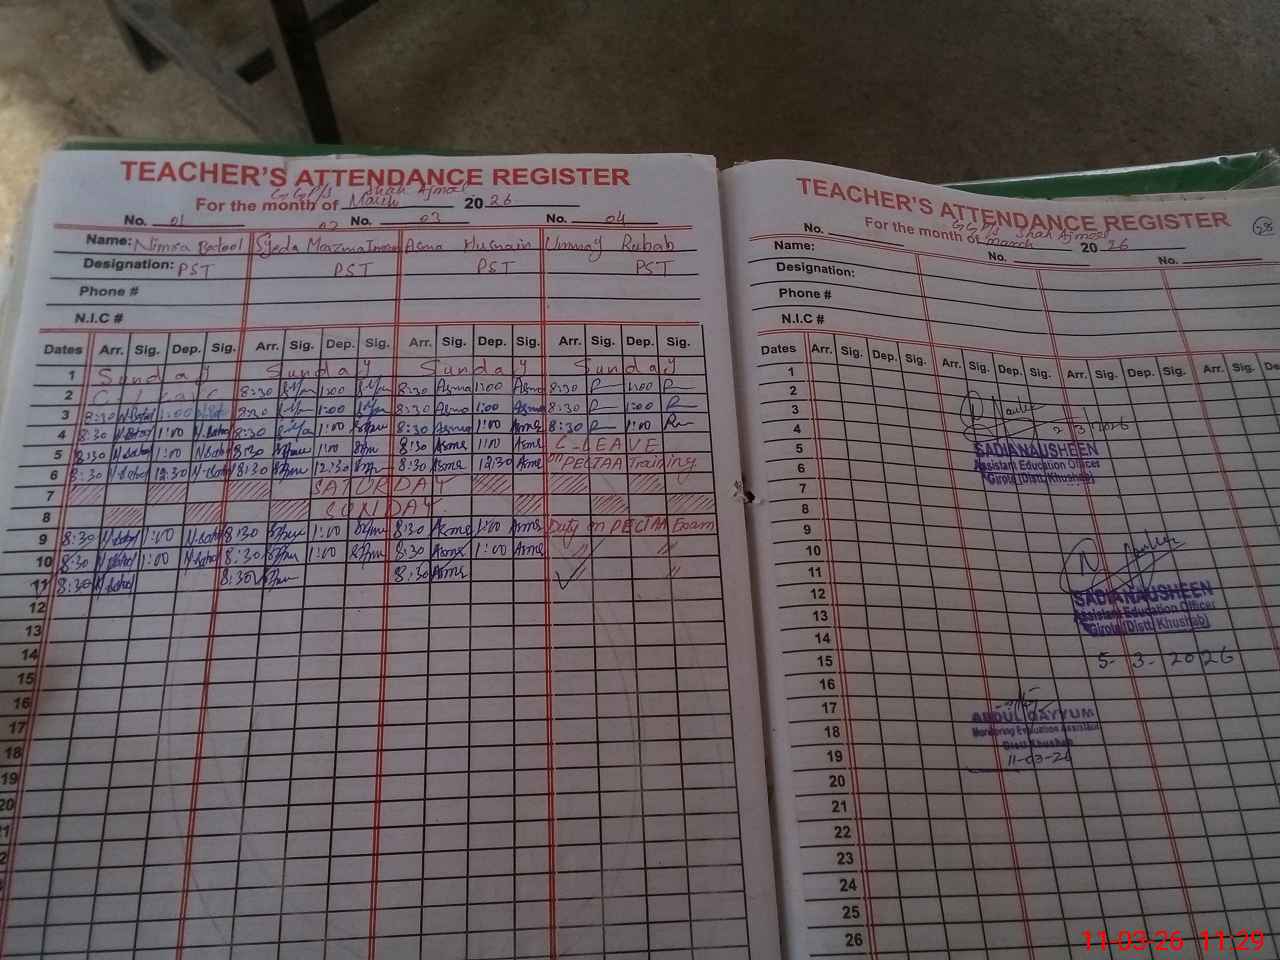 TEACHER'S ATTENDANCE REGISTER
GGP/S Shah Ajmal
For the month of March 20 26
No. 01 02 No. 03 No. 04
Name: Nimra Batool Syeda Asma Husnain Ummay Rubab
Designation: PST PST PST PST
Phone #
N.I.C #
Dates Arr. Sig. Dep. Sig. Arr. Sig. Dep. Sig. Arr. Sig. Dep. Sig. Arr. Sig. Dep. Sig.
1 Sunday Sunday Sunday Sunday
2 8:30 1:00 8:30 Asma 1:00 Asma 8:30 R 1:00 R
3 8:30 N.Batol 1:00 N.Batol 8:30 1:00 8:30 Asma 1:00 Asma 8:30 R 1:00 R
4 8:30 N.Batol 1:00 N.Batol 8:30 1:00 8:30 Asma 1:00 Asma 8:30 R 1:00 R
5 8:30 N.Batol 1:00 N.Batol 8:30 1:00 8:30 Asma 1:00 Asma C-LEAVE
6 8:30 N.Batol 12:30 N.Batol 8:30 12:30 8:30 Asma 12:30 Asma PECTAA Training
7 SATURDAY
8 SUNDAY
9 8:30 N.Batol 1:00 N.Batol 8:30 1:00 8:30 Asma 1:00 Asma Duty on PECTAA Exam
10 8:30 N.Batol 1:00 N.Batol 8:30 1:00 8:30 Asma 1:00 Asma // //
11 8:30 N.Batol 8:30 8:30 Asma // //
12
13
14
15
16
17
18
19
20
21
TEACHER'S ATTENDANCE REGISTER
GGP/S Shah Ajmal
For the month of March 20 26
58
No. No. No.
Name:
Designation:
Phone #
N.I.C #
Dates Arr. Sig. Dep. Sig. Arr. Sig. Dep. Sig. Arr. Sig. Dep. Sig. Arr. Sig.
1
2
3
4
5
6
7
8
9
10
11
12
13
14
15
16
17
18
19
20
21
22
23
24
25
26
2/3/2026
SADIA NAUSHEEN
Assistant Education Officer
Girote (Distt. Khushab)
SADIA NAUSHEEN
Assistant Education Officer
Girote (Distt. Khushab)
5-3-2026
ABDUL QAYYUM
Monitoring Evaluation Assistant
Distt Khushab
11-03-26
11-03-26 11:29